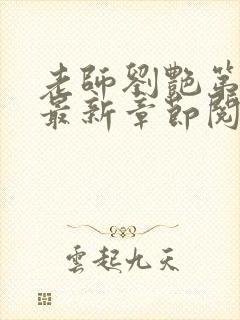 老師劉艷第
最新章節閱
雲起九天